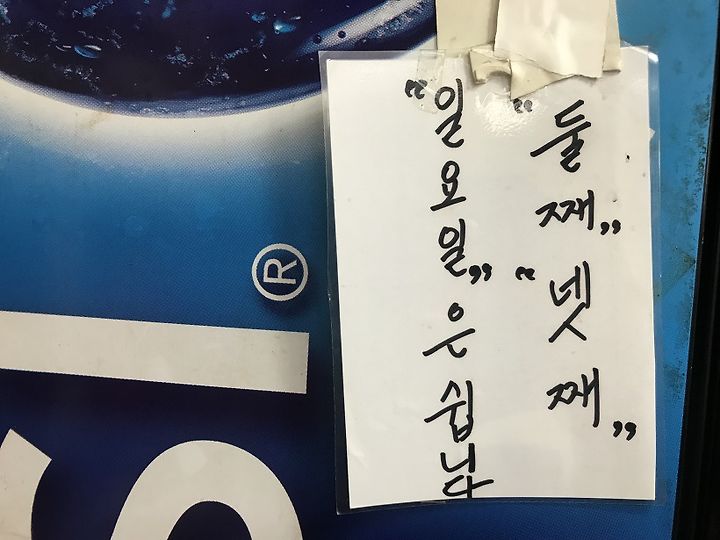 “둘째” “넷째”
“일요일”은 쉽니다
®
SI